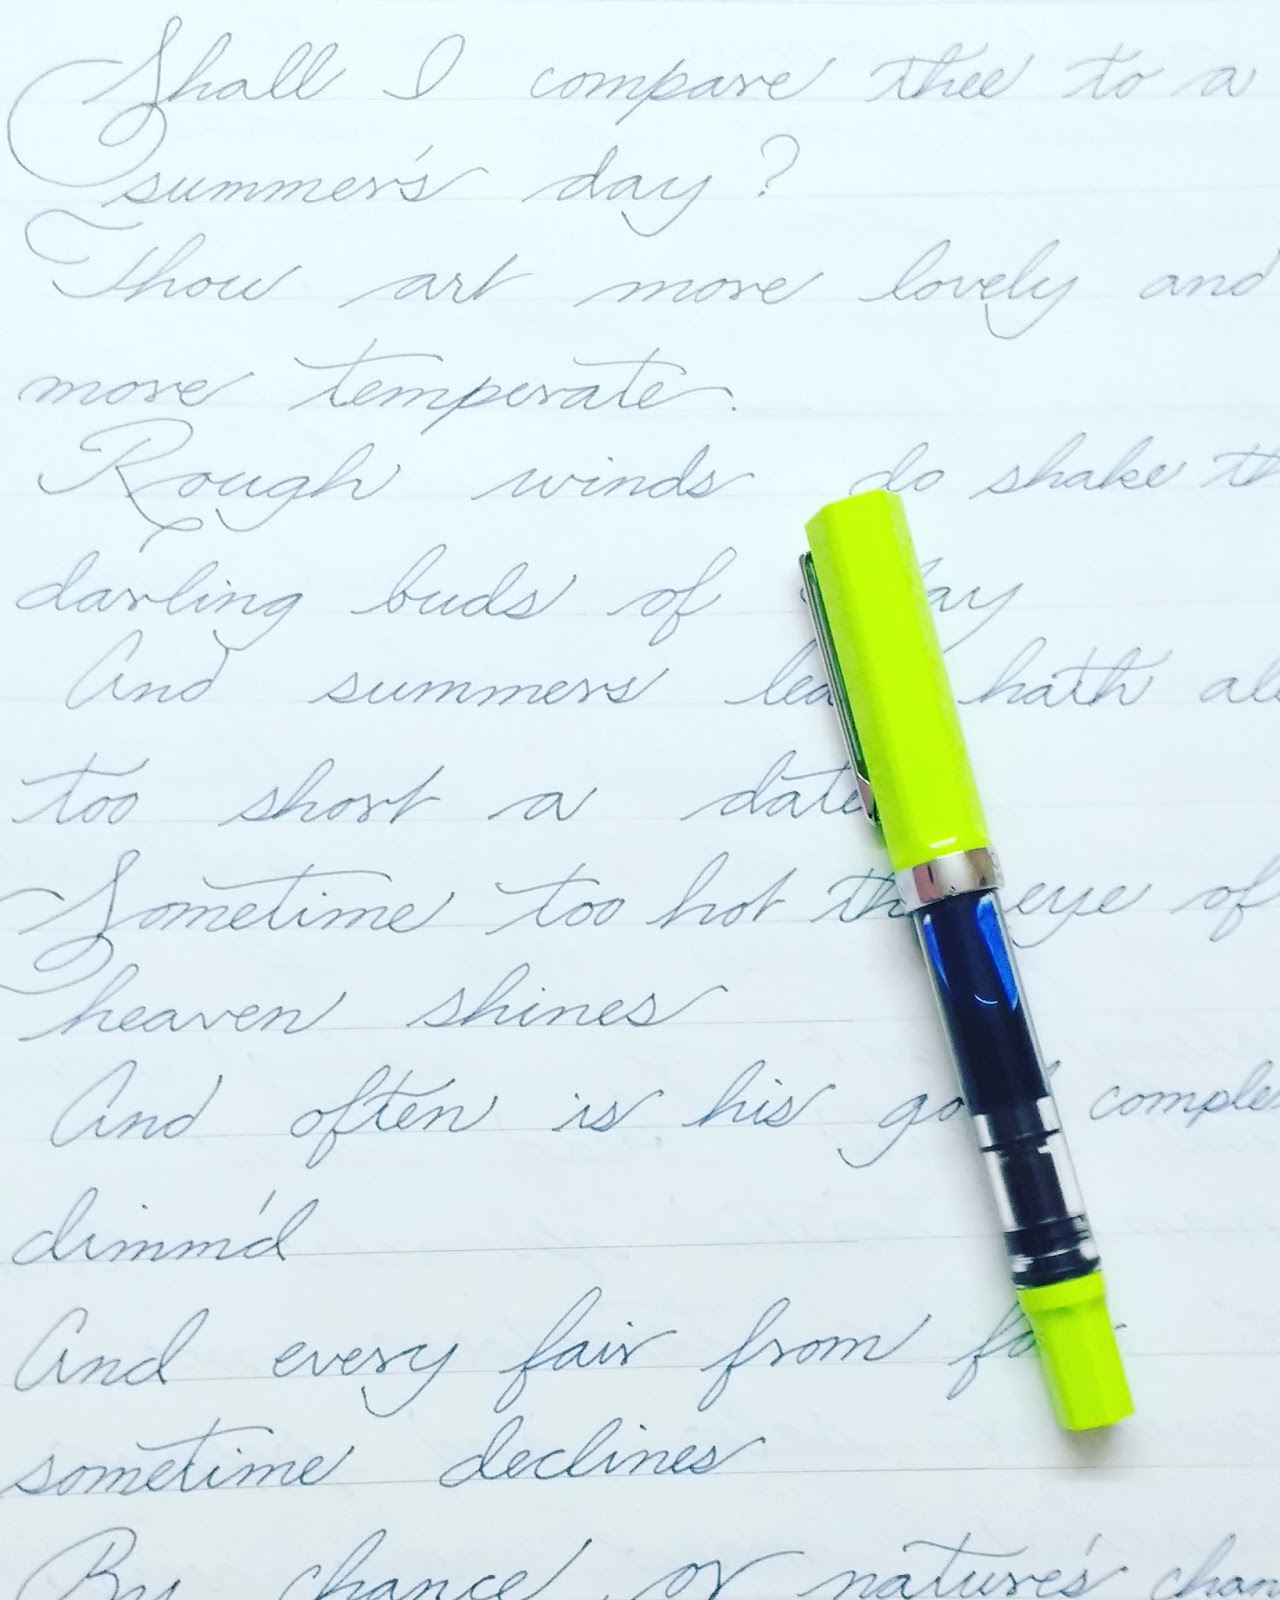 Shall I compare thee to a
summer's day?
Thou art more lovely and
more temperate.
Rough winds do shake th
darling buds of ay
And summers lea hath al
too short a date
Sometime too hot th eye of
heaven shines
And often is his go comple
dimm'd
And every fair from fa
sometime declines
By chance or nature's chan